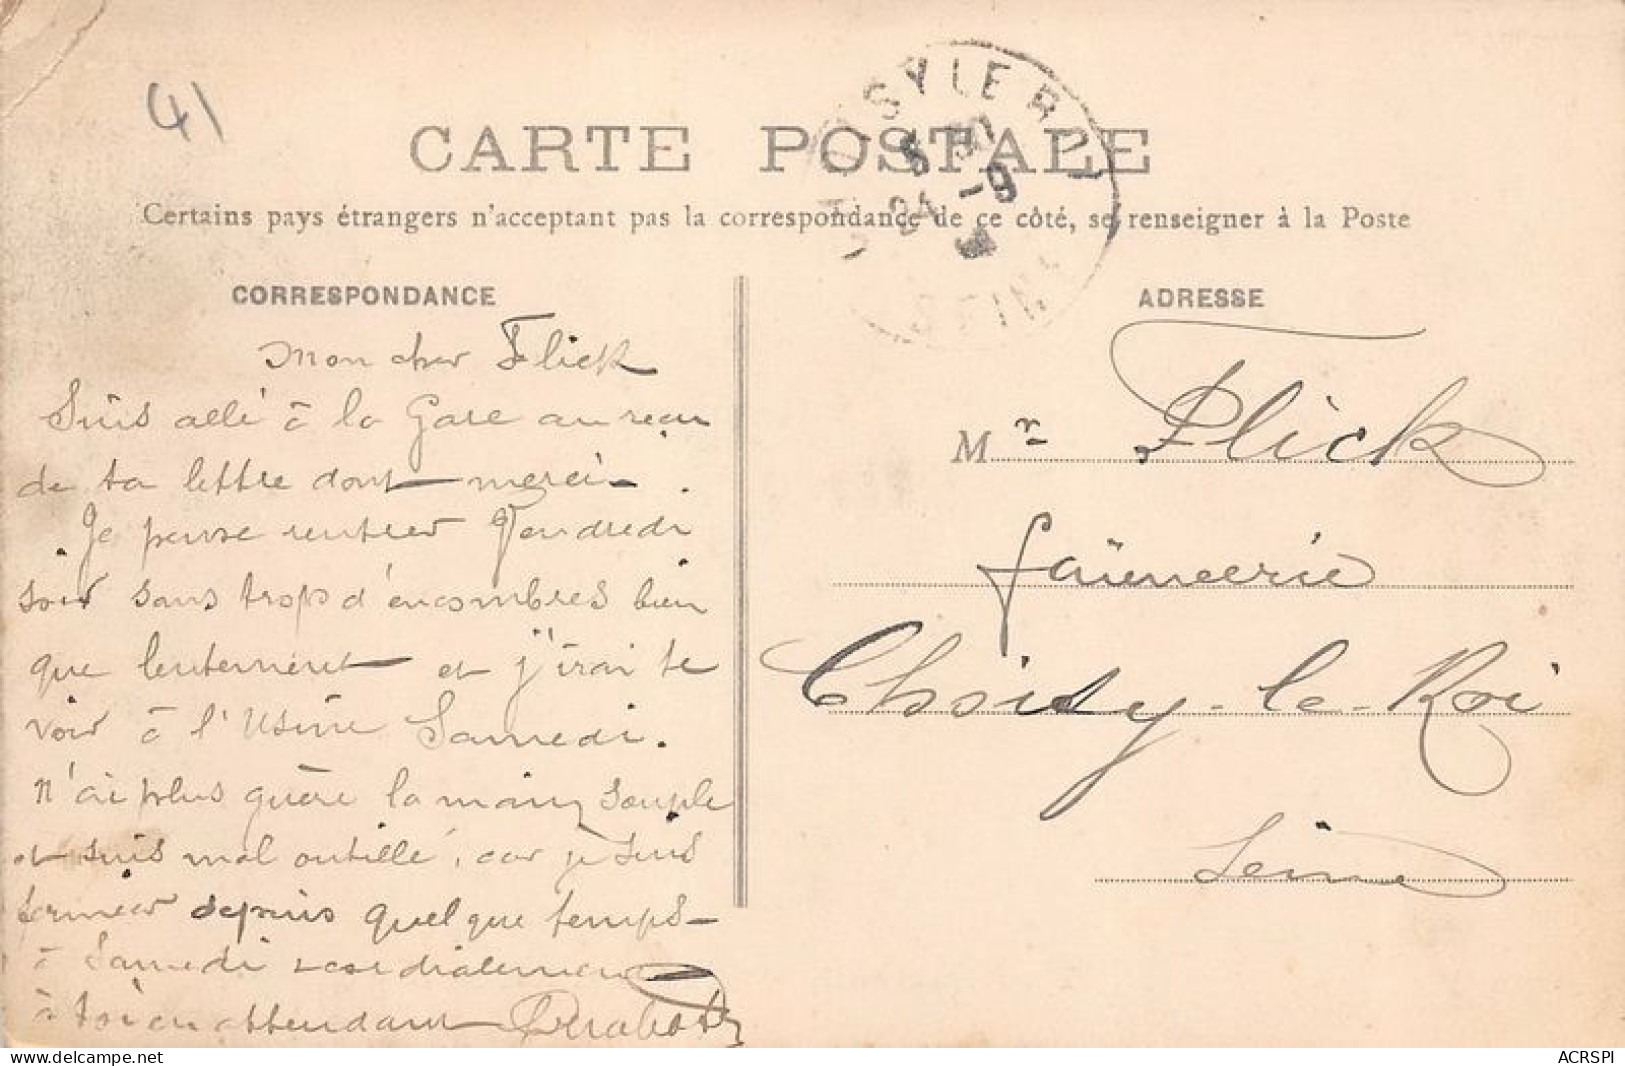 41
CARTE POSTALE
Certains pays étrangers n'acceptent pas la correspondance de ce côté, se renseigner à la Poste
CORRESPONDANCE
Mon cher Flick
Suis allé à la Gare au reçu
de ta lettre dont merci.
Je pense rentrer Vendredi
soir sans trop d'encombres bien
que lentement et j'irai te
voir à l'Usine Samedi.
N'ai plus guère la main souple
et suis mal outillé, car je suis
fermier depuis quelque temps
à Samedi cordialement
à toi en attendant
ADRESSE
Mr Flick
faïencerie
Choisy-le-Roi
Seine
SY LE R
24 -9
SEINE
delcampe.net
ACRSPI